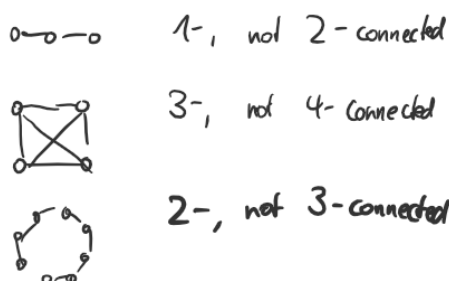 1-, not 2-connected
3-, not 4-connected
2-, not 3-connected